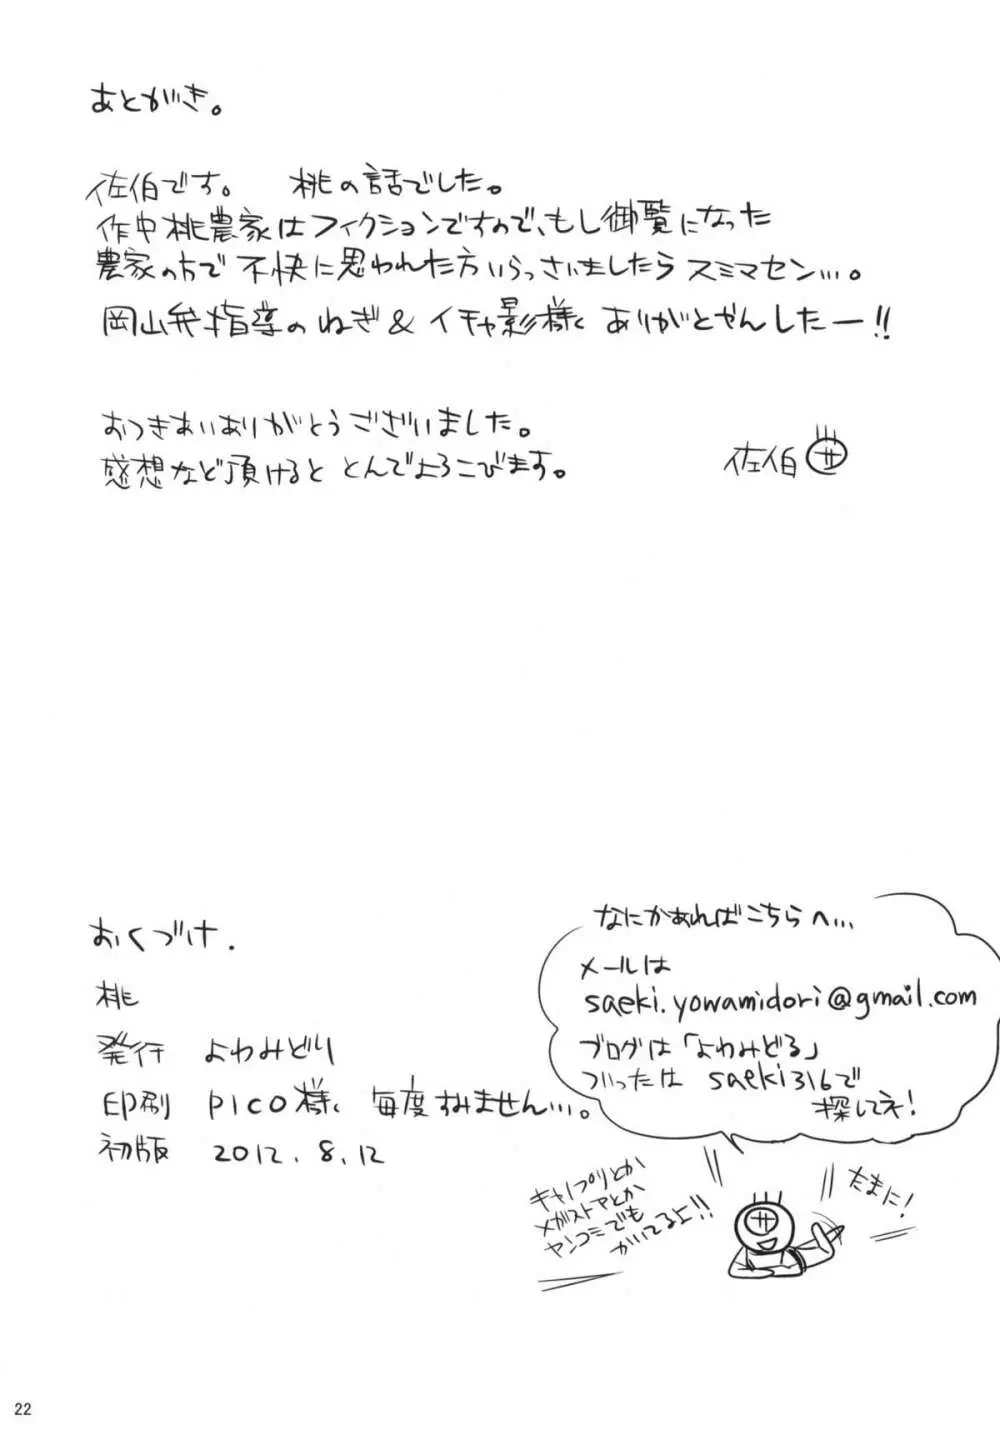 あとがき。
佐伯です。 桃の話でした。
作中桃農家はフィクションですので、もし御覧になった
農家の方で不快に思われた方いらっさいましたらスミマセン…。
岡山弁指導のねぎ&イチャ影様 ありがとやんしたー!!
おつきあいありがとうございました。
感想など頂けると とんでよろこびます。
佐伯 サ
おくづけ.
桃
発行 よわみどり
印刷 PICO様 毎度すみません…。
初版 2012.8.12
なにかあればこちらへ…
メールは
saeki.yowamidori@gmail.com
ブログは「よわみどる」
ついったは saeki316で
探してネ!
キャノプリとか
メガストアとか
ヤンコミでも
かいてるよ!!
サ
たまに!
22